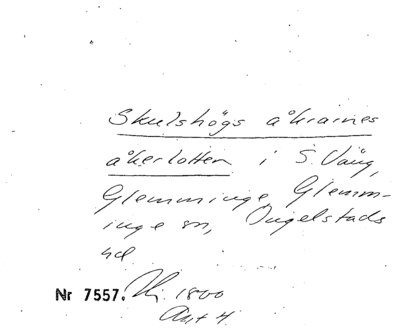 Skulshögs åkrarnes
åkerlotten i S. Vång,
Glemminge, Glemm-
inge sn, Ingelstads
hd
Nr 7557. 1800
Akt 4